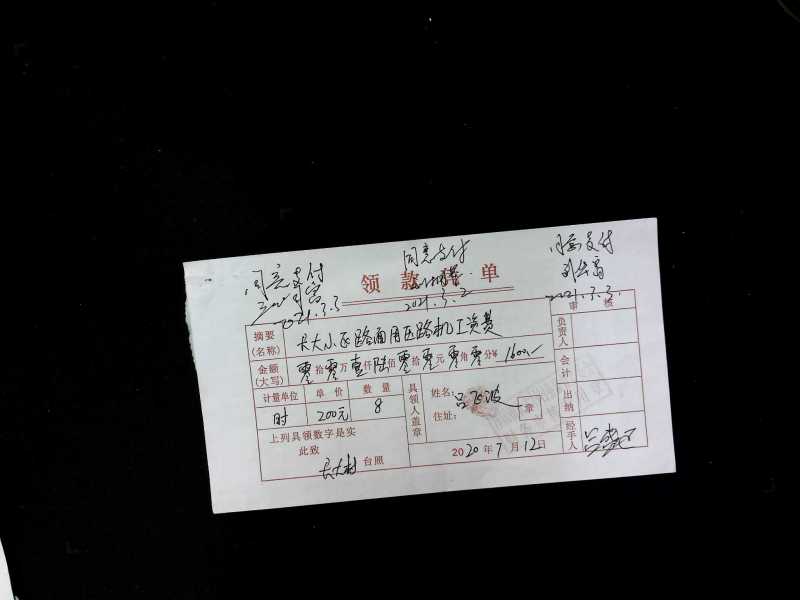 同意支付
2021.3.3
同意支付
2021.3.2
同意支付
2021.3.3.
领款 单
审核
摘要(名称)
大小 路面用压路机工资费
金额(大写) 零拾零万壹仟陆佰零拾零元零角零分¥1600.—
计量单位 单价 数量
时 200元 8
上列具领数字是实
此致
台照
具领人盖章
姓名: 吕飞波
住址:
章
2020年7月12日
负责人
会计
出纳
经手人